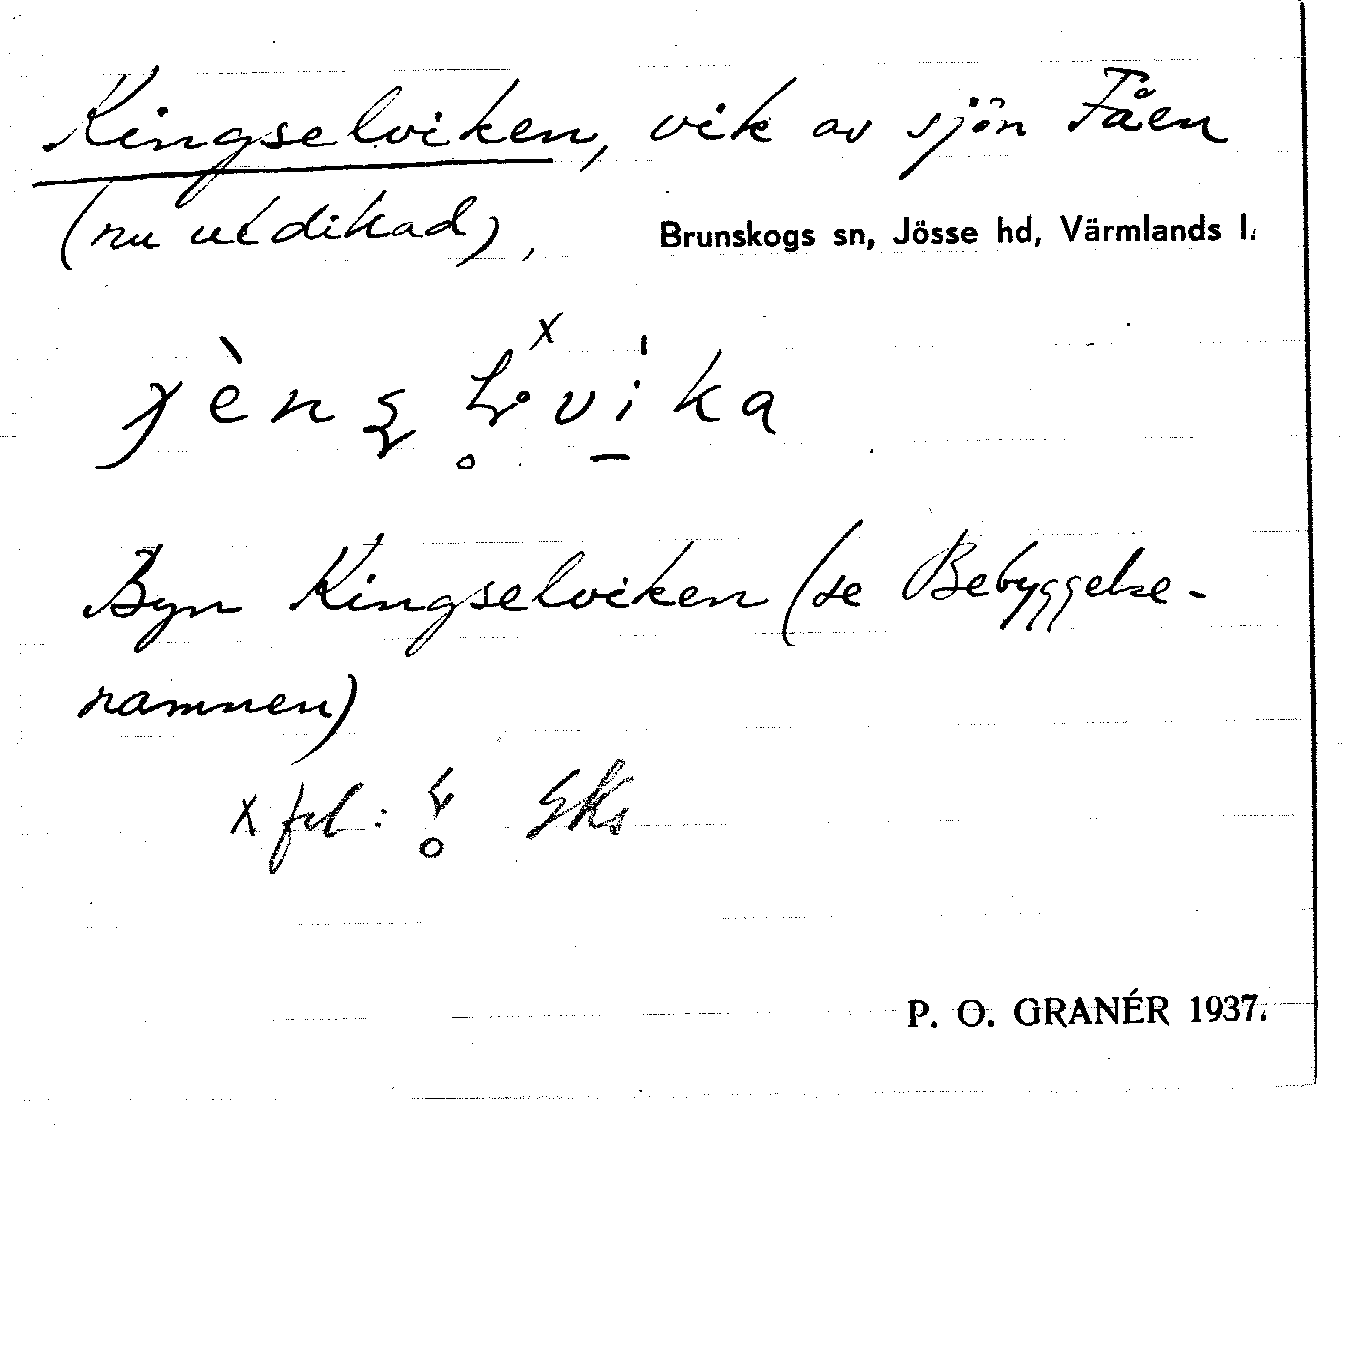 Kingselviken, vik av sjön Fåen
(nu utdikad), Brunskogs sn, Jösse hd, Värmlands l.
x
Byn Kingselviken (se Bebyggelse-
namnen)
x fel:
P. O. GRANÉR 1937.